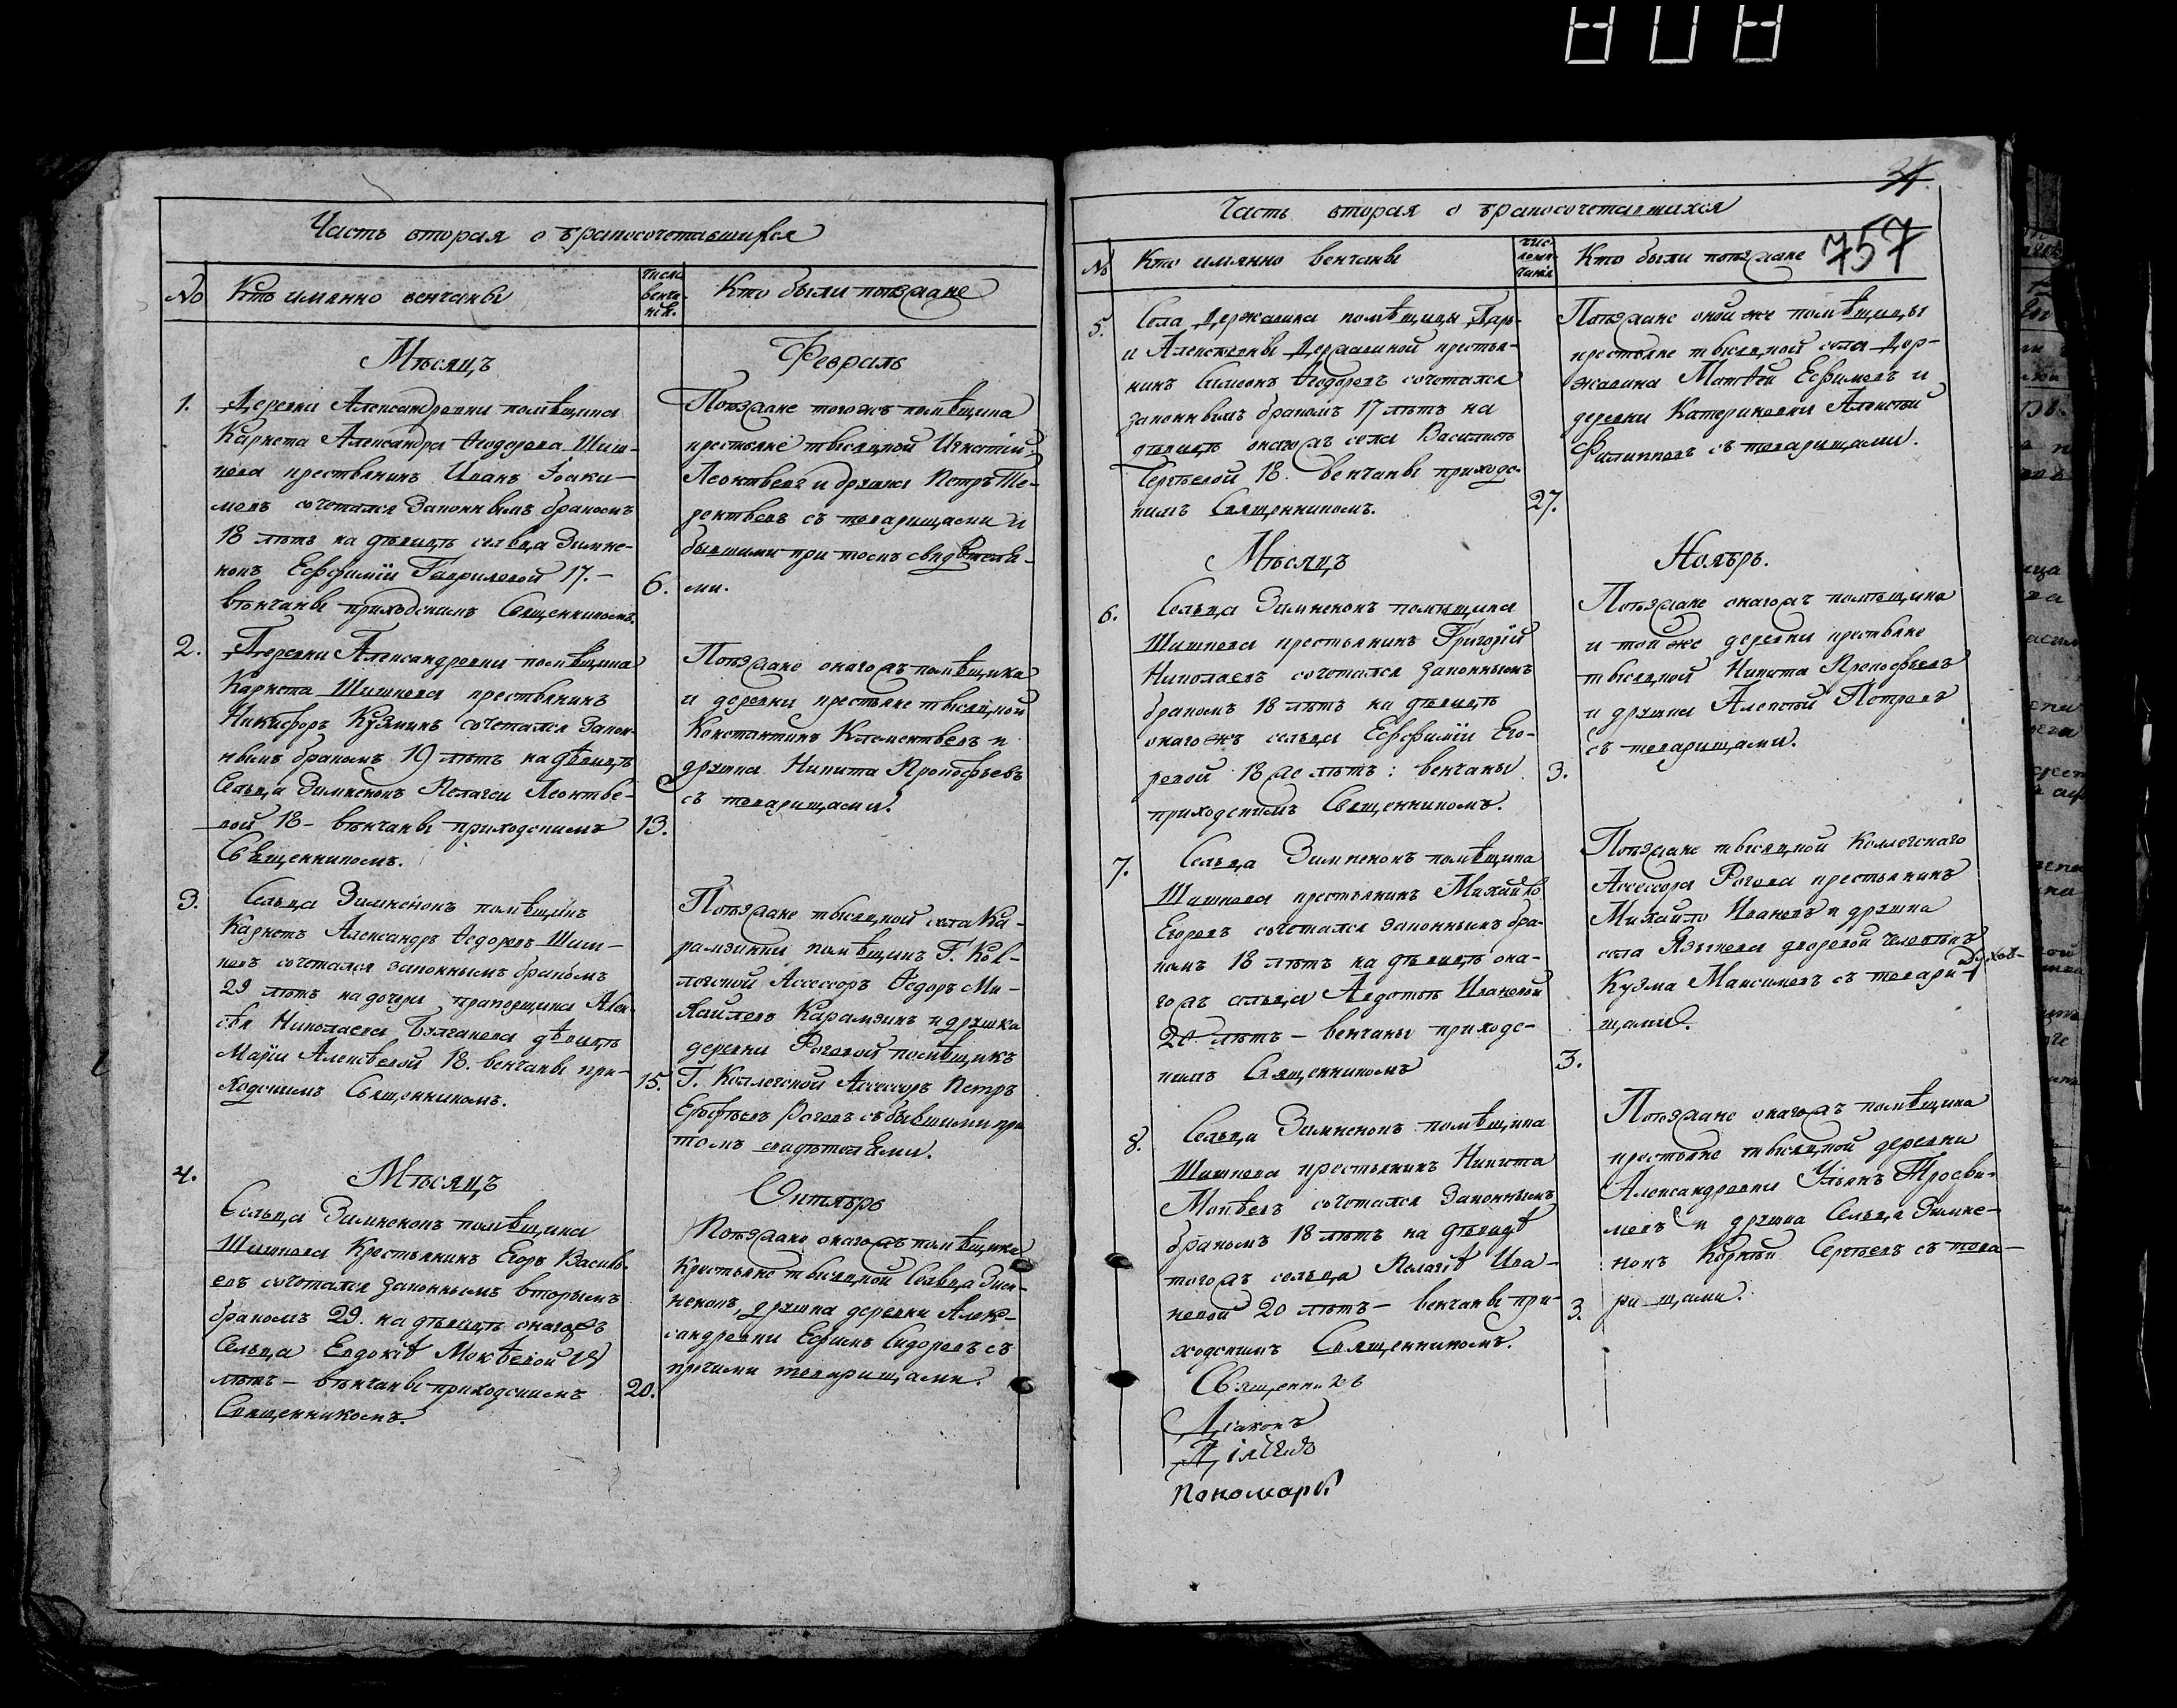 Часть вторая о бракосочетавшихся
No Кто именно венчаны
число венча-нія.
Кто были поѣзжане
Мѣсяцъ
Февраль
1.
Деревни Александровки помѣщика
Карнета Александра Ѳеодорова Шиш-
кова крестьянинъ Иванъ Іоаки-
мовъ сочетался законнымъ бракомъ
18 лѣтъ на дѣвицѣ сельца Зимне-
нокъ Евфиміи Гавриловой 17.-
вѣнчаны приходскимъ Священникомъ.
6.
Поѣзжане тогожъ помѣщика
крестьяне тысяцкой Игнатій
Леонтьевъ и дружка Петръ Те-
рентьевъ съ товарищами и
бывшими при томъ свидѣтеля-
ми.
2.
Деревни Александровки помѣщика
Карнета Шишкова крестьянинъ
Никифоръ Кузминъ сочетался закон-
нымъ бракомъ 19 лѣтъ на дѣвицѣ
Сельца Зимненокъ Пелагеи Леонтье-
вой 18- вѣнчаны приходскимъ
Священникомъ.
13.
Поѣзжане онагожъ помѣщика
и деревни крестьяне тысяцкой
Константинъ Клементьевъ и
дружка Никита Прокофьевъ
съ товарищами.
3.
Сельца Зимненокъ помѣщикъ
Карнетъ Александръ Ѳедоровъ Шиш-
ковъ сочетался законнымъ бракомъ
29 лѣтъ на дочери прапорщика Алек-
сѣя Николаева Булгакова дѣвицѣ
Маріи Алексѣевой 18. венчаны при-
ходскимъ Священникомъ.
15.
Поѣзжане тысяцкой села Ка-
рамзинки помѣщикъ Г. Кол-
лежской Ассессоръ Ѳедоръ Ми-
хайловъ Карамзинъ и дружка
деревни Роговой помѣщикъ
Г. Коллежской Ассессоръ Петръ
Ерофѣевъ Роговъ съ бывшими при
томъ свидѣтелями.
4.
Мѣсяцъ
Октябрь
Сельца Зимненокъ помѣщика
Шишкова Крестьянинъ Егоръ Василь-
евъ сочетался законнымъ вторымъ
бракомъ 29. на дѣвицѣ онагожъ
Сельца Евдокіѣ Мокѣевой 18
лѣтъ - вѣнчаны приходскимъ
Священникомъ.
20.
Поѣзжане онагожъ помѣщика
Крестьяне тысяцкой Сельца Зим-
ненокъ, дружка деревни Алек-
сандровки Ефимъ Сидоровъ съ
прочими товарищами.
757
Часть вторая о бракосочетавшихся
No Кто имянно венчаны
Кто были поѣзжане
5.
Села Державина помѣщицы Дарь-
и Алексѣевны Державиной крестья-
нинъ Симеонъ Ѳеодоровъ сочетался
законнымъ бракомъ 17 лѣтъ на
дѣвицѣ онагожъ села Василисѣ
Сергѣевой 18. венчаны приходс-
кимъ Священникомъ.
27.
Поѣзжане оной же помѣщицы
крестьяне тысяцкой села Дер-
жавина Матѳей Ефимовъ и
деревни Катериновки Алексѣй
Филипповъ съ товарищами.
Мѣсяцъ
Ноябрь.
6.
Сельца Зимненокъ помѣщика
Шишкова крестьянинъ Григорій
Николаевъ сочетался законнымъ
бракомъ 18 лѣтъ на дѣвицѣ
онагожъ сельца Евфиміи Его-
ровой 18 же лѣтъ: венчаны
приходскимъ Священникомъ.
3.
Поѣзжане онагожъ помѣщика
и той же деревни крестьяне
тысяцкой Никита Прокофьевъ
и дружка Алексѣй Петровъ
съ товарищами.
7.
Сельца Зимненокъ помѣщика
Шишкова крестьянинъ Михайло
Егоровъ сочетался законнымъ бра-
комъ 18 лѣтъ на дѣвицѣ она-
гожъ сельца Авдотьѣ Ивановой
20 лѣтъ - венчаны приходс-
кимъ Священникомъ
3.
Поѣзжане тысяцкой Коллежскаго
Ассессора Рогова крестьянинъ
Михайло Ивановъ и дружка
села Языкова дворовой человѣкъ
Кузма Максимовъ съ товари-
щами.
8.
Сельца Зимненокъ помѣщика
Шишкова крестьянинъ Никита
Мокѣевъ сочетался законнымъ
бракомъ 18 лѣтъ на дѣвицѣ
тогожъ сельца Пелагіѣ Ива-
новой 20 лѣтъ - венчаны при-
ходскимъ Священникомъ.
3.
Поѣзжане онагожъ помѣщика
крестьяне тысяцкой деревни
Александровки Ульянъ Трофи-
мовъ и дружка Сельца Зимне-
нокъ Корнѣй Сергѣевъ съ това-
рищами.
Священникъ
Діаконъ
Дьячекъ
Пономарь